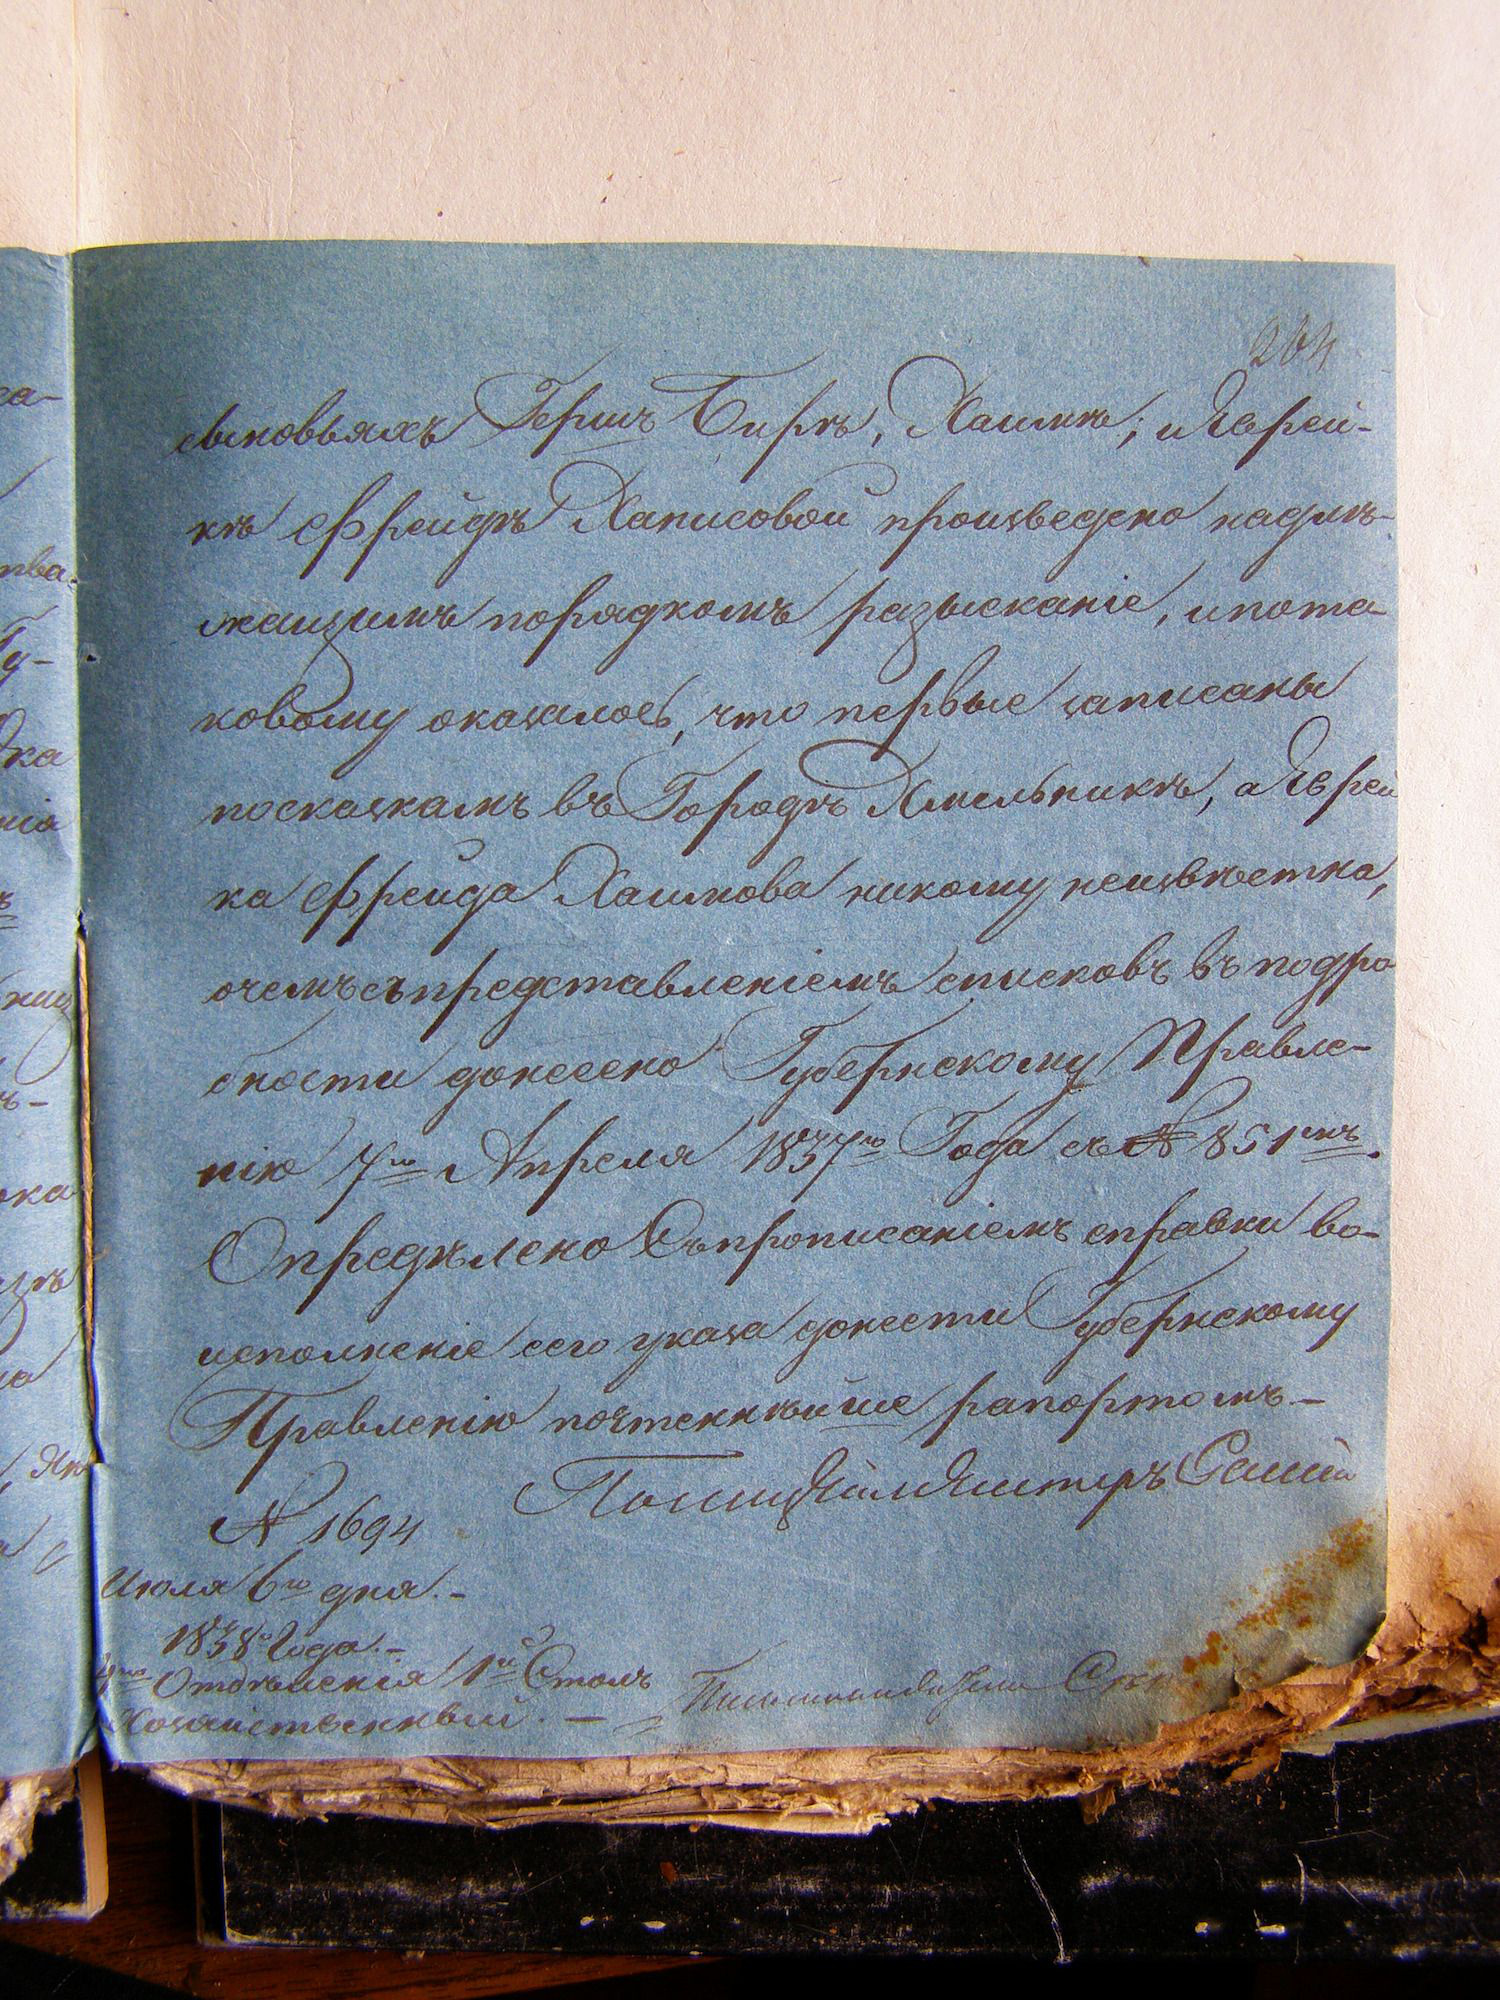 204
сыновьяхъ Герше Беркѣ, Хаимкѣ; и Еврей-
кѣ Фрейдѣ Хаписовой произведено надлѣ-
жащимъ порядкомъ разысканіе, и пота-
ковому оказалось, что первые записаны
посказкамъ въ Городѣ Хмельникѣ, а Еврей
ка Фрейда Хаимова никому неизвѣстна,
очемъ съ представленіемъ списковъ въ подро
бности донесено Губернскому Правле-
нію 7го Апреля 1837го Года съ № 851мъ.
Опредѣлено Съ прописаніемъ справки во-
исполненіе сего указа донести Губернскому
Правленію почтеннѣйше рапортомъ.-
Полицеймейстеръ
№ 1694
Июля 6го дня.-
1838 Года.-
Отдѣленія 1й Столъ
Хозяйственный. —
Письмоводитель